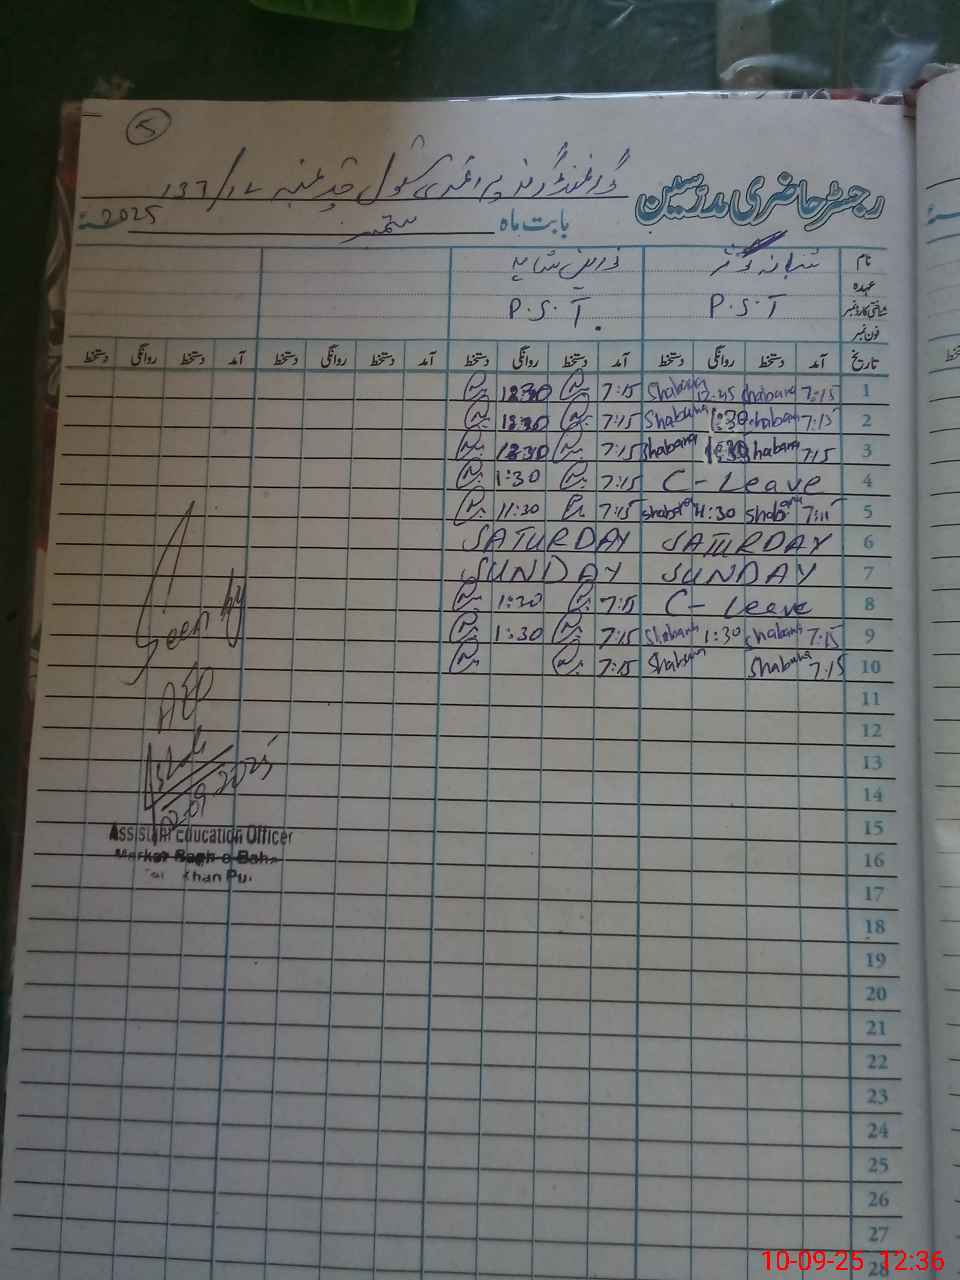 5
رجسٹر حاضری مدرسین
گورنمنٹ گرلز پرائمری سکول چک نمبر 137/1L
بابت ماہ ستمبر 2025ء
نام شبانہ کوثر
عہدہ
شناختی کارڈ نمبر P.S.T P.S.T
فون نمبر
تاریخ آمد دستخط روانگی دستخط آمد دستخط روانگی دستخط آمد دستخط روانگی دستخط آمد دستخط روانگی دستخط
1 7:15 Shabana 12:45 Shabana 7:15
2 7:15 Shabana 1:30 Shabana 7:15
3 7:15 Shabana 1:30 Shabana 7:15
4 C-Leave 7:15 1:30
5 7:15 Shabana 11:30 Shabana 7:15 11:30
6 SATURDAY SATURDAY
7 SUNDAY SUNDAY
8 C-Leave 7:15 1:30
9 7:15 Shabana 1:30 Shabana 7:15 1:30
10 7:15 Shabana Shabana 7:15
11
12
13
14
15
16
17
18
19
20
21
22
23
24
25
26
27
28
Seen by
AEO
10-09-2025
Assistant Education Officer
Markaz Bagh-o-Bahar
Khan Pur
10-09-25 12:36